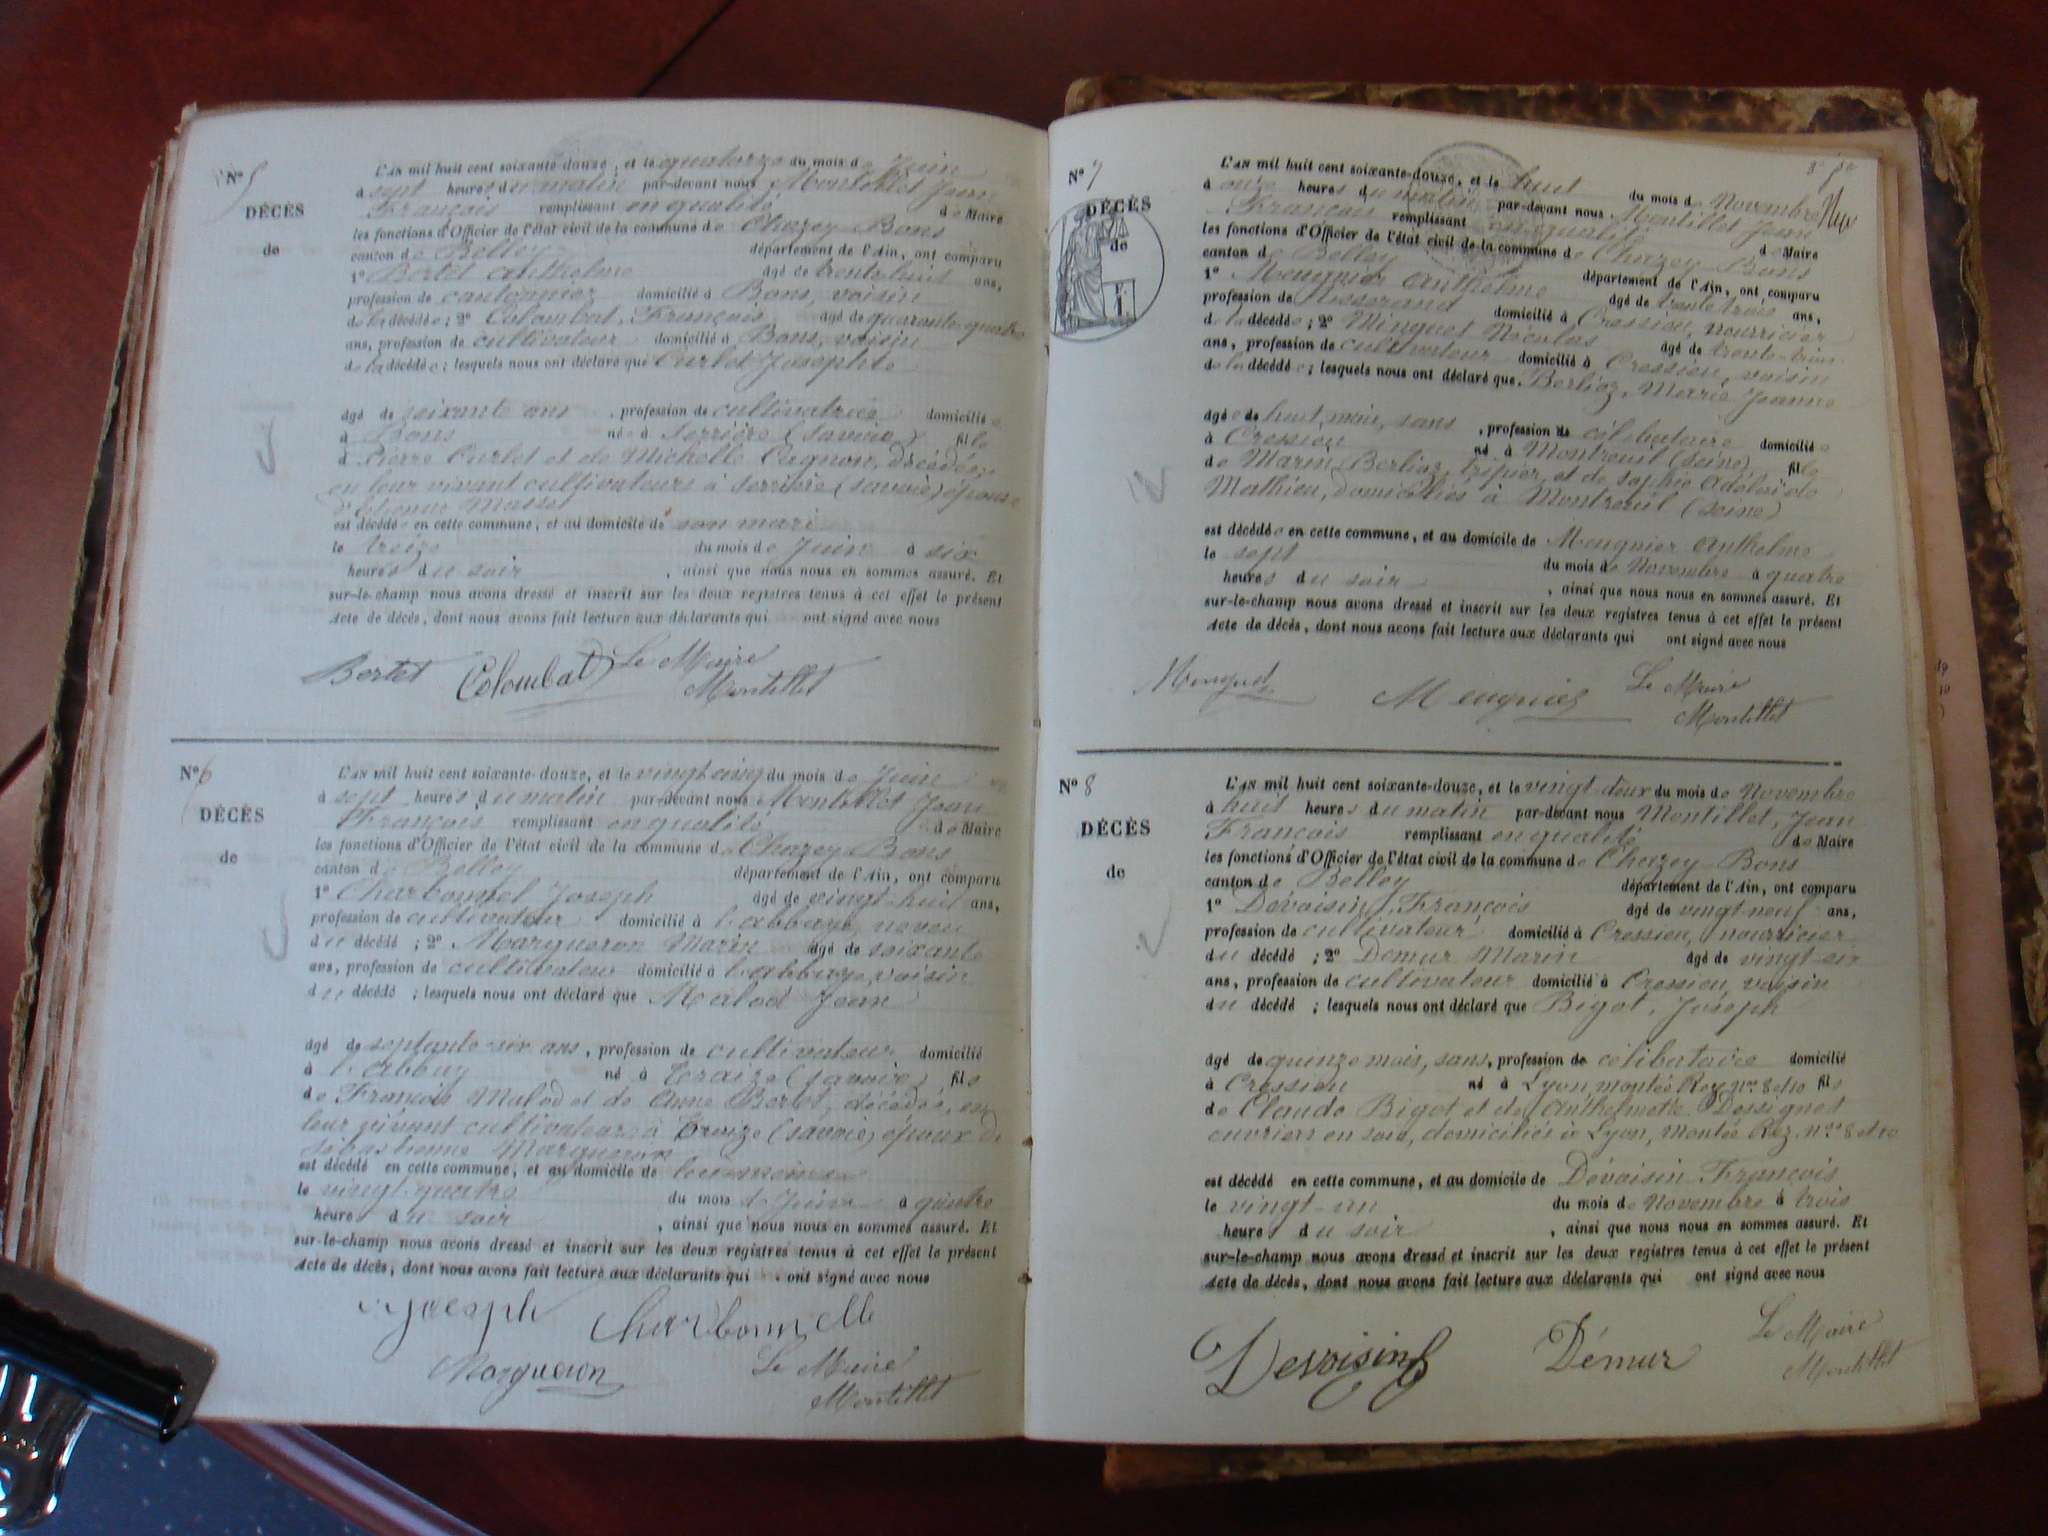 Nº 5
DÉCÈS
de
L'AN mil huit cent soixante-douze, et le quatorze du mois de Juin
à sept heures du matin par-devant nous Montillet Jean
François remplissant en qualité de Maire
les fonctions d'Officier de l'état civil de la commune de Chazey-Bons
canton de Belley département de l'Ain, ont comparu
1º Bertet Anthelme âgé de trente-huit ans,
profession de cantonnier domicilié à Bons, voisin
de la décédée ; 2º Colombat, François, âgé de quarante-quatre
ans, profession de cultivateur domicilié à Bons, voisin
de la décédée ; lesquels nous ont déclaré que Curlet Josephte
âgé de soixante ans , profession de cultivatrice domiciliée
à Bons née à Serrière (Savoie) fille
d Pierre Curlet et de Michelle Cagnon, décédés,
en leur vivant cultivateurs à Serrière (Savoie) épouse
d'Etienne Massel
est décédée en cette commune, et au domicile de son mari
le treize du mois de Juin à six
heures du soir , ainsi que nous nous en sommes assuré. Et
sur-le-champ nous avons dressé et inscrit sur les deux registres tenus à cet effet le présent
Acte de décès, dont nous avons fait lecture aux déclarants qui ont signé avec nous
Bertet Colombat Le Maire
Montillet
Nº 6
DÉCÈS
de
L'AN mil huit cent soixante-douze, et le vingt-cinq du mois de Juin
à sept heures du matin par-devant nous Montillet Jean
François remplissant en qualité de Maire
les fonctions d'Officier de l'état civil de la commune de Chazey-Bons
canton de Belley département de l'Ain, ont comparu
1º Charbonnel Joseph âgé de vingt-huit ans,
profession de cultivateur domicilié à l'abbaye, neveu
du décédé ; 2º Margueron Marin âgé de soixante
ans, profession de cultivateur domicilié à l'abbaye, voisin
du décédé ; lesquels nous ont déclaré que Malod Jean
âgé de septante-six ans , profession de cultivateur domicilié
à l'abbay né à Traize (Savoie) fils
de François Malod et de Anne Bertet, décédés, en
leur vivant cultivateurs à Traize (Savoie) époux de
Sébastienne Margueron
est décédé en cette commune, et au domicile de
le vingt-quatre du mois de Juin à quatre
heures du soir , ainsi que nous nous en sommes assuré. Et
sur-le-champ nous avons dressé et inscrit sur les deux registres tenus à cet effet le présent
Acte de décès, dont nous avons fait lecture aux déclarants qui ont signé avec nous
Joesph Charbonnelle
Margueron Le Maire
Montillet
Nº 7
DÉCÈS
de
L'AN mil huit cent soixante-douze, et le huit du mois de Novembre
à onze heures du matin par-devant nous Montillet Jean
François remplissant en qualité de Maire
les fonctions d'Officier de l'état civil de la commune de Chazey-Bons
canton de Belley département de l'Ain, ont comparu
1º Meugnier Anthelme âgé de trente-trois ans,
profession de Tisserand domicilié à Cressieu, nourricier
de la décédée ; 2º Minguet Nicolas âgé de trente-trois
ans, profession de cultivateur domicilié à Cressieu, voisin
de la décédée ; lesquels nous ont déclaré que Berlioz, Marie Jeanne
âgée de huit mois, sans , profession de célibataire domiciliée
à Cressieu né à Montreuil (Seine) fille
de Marin Berlioz, tripier, et de Sophie Adélaïde
Mathieu, domiciliés à Montreuil (Seine)
est décédée en cette commune, et au domicile de Meugnier Anthelme
le sept du mois de Novembre à quatre
heures du soir , ainsi que nous nous en sommes assuré. Et
sur-le-champ nous avons dressé et inscrit sur les deux registres tenus à cet effet le présent
Acte de décès, dont nous avons fait lecture aux déclarants qui ont signé avec nous
Minguet Meugnier Le Maire
Montillet
Nº 8
DÉCÈS
de
L'AN mil huit cent soixante-douze, et le vingt-deux du mois de Novembre
à huit heures du matin par-devant nous Montillet, Jean
François remplissant en qualité de Maire
les fonctions d'Officier de l'état civil de la commune de Chazey-Bons
canton de Belley département de l'Ain, ont comparu
1º Dévoisin, François âgé de vingt-neuf ans,
profession de cultivateur domicilié à Cressieu, nourricier
du décédé ; 2º Demur Marin âgé de vingt-six
ans, profession de cultivateur domicilié à Cressieu, voisin
du décédé ; lesquels nous ont déclaré que Bigot, Joseph
âgé de quinze mois, sans, profession de célibataire domicilié
à Cressieu né à Lyon, montée Rey nos 8 et 10 fils
de Claude Bigot et de Anthelmette Dessignes
ouvriers en soie, domiciliés à Lyon, montée Rey. nos 8 et 10
est décédé en cette commune, et au domicile de Dévoisin François
le vingt-un du mois de Novembre à trois
heures du soir , ainsi que nous nous en sommes assuré. Et
sur-le-champ nous avons dressé et inscrit sur les deux registres tenus à cet effet le présent
Acte de décès, dont nous avons fait lecture aux déclarants qui ont signé avec nous
Devoisin Démur Le Maire
Montillet